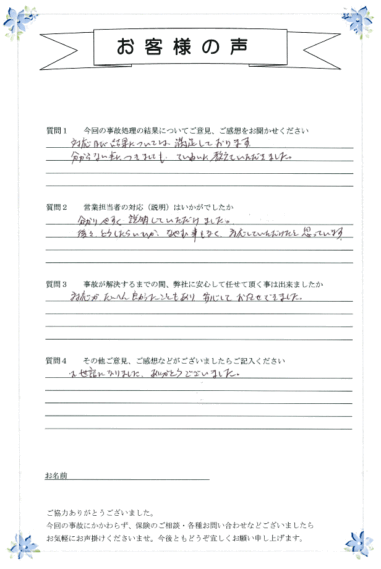 お客様の声
質問１　今回の事故処理の結果についてご意見、ご感想をお聞かせください
対応及び結果については 満足しております
分からない点につきましても ていねいに教えていただきました。
質問２　営業担当者の対応（説明）はいかがでしたか
分かりやすく 説明していただけました。
どうしたらいいか なやむ事もなく 対応していただけたと思っています
質問３　事故が解決するまでの間、弊社に安心して任せて頂く事は出来ましたか
対応が たいへん良かったこともあり 安心して おまかせできました。
質問４　その他ご意見、ご感想などがございましたらご記入ください
お世話になりました、ありがとうございました。
お名前
ご協力ありがとうございました。
今回の事故にかかわらず、保険のご相談・各種お問い合わせなどございましたら
お気軽にお声掛けくださいませ。今後ともどうぞ宜しくお願い申し上げます。